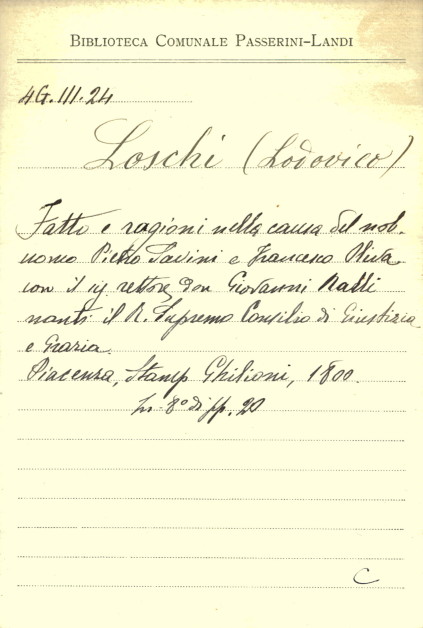 BIBLIOTECA COMUNALE PASSERINI-LANDI
4G.III.24
Loschi (Lodovico)
Fatto e ragioni nella causa del nob.
uomo Pietro Savini e Francesco
con il sig rettore don Giovanni Ratti
nanti il R. Supremo Consilio di Giustizia
e Grazia.
Piacenza, Stamp Ghilioni, 1800.
In 8° di pp. 20
C